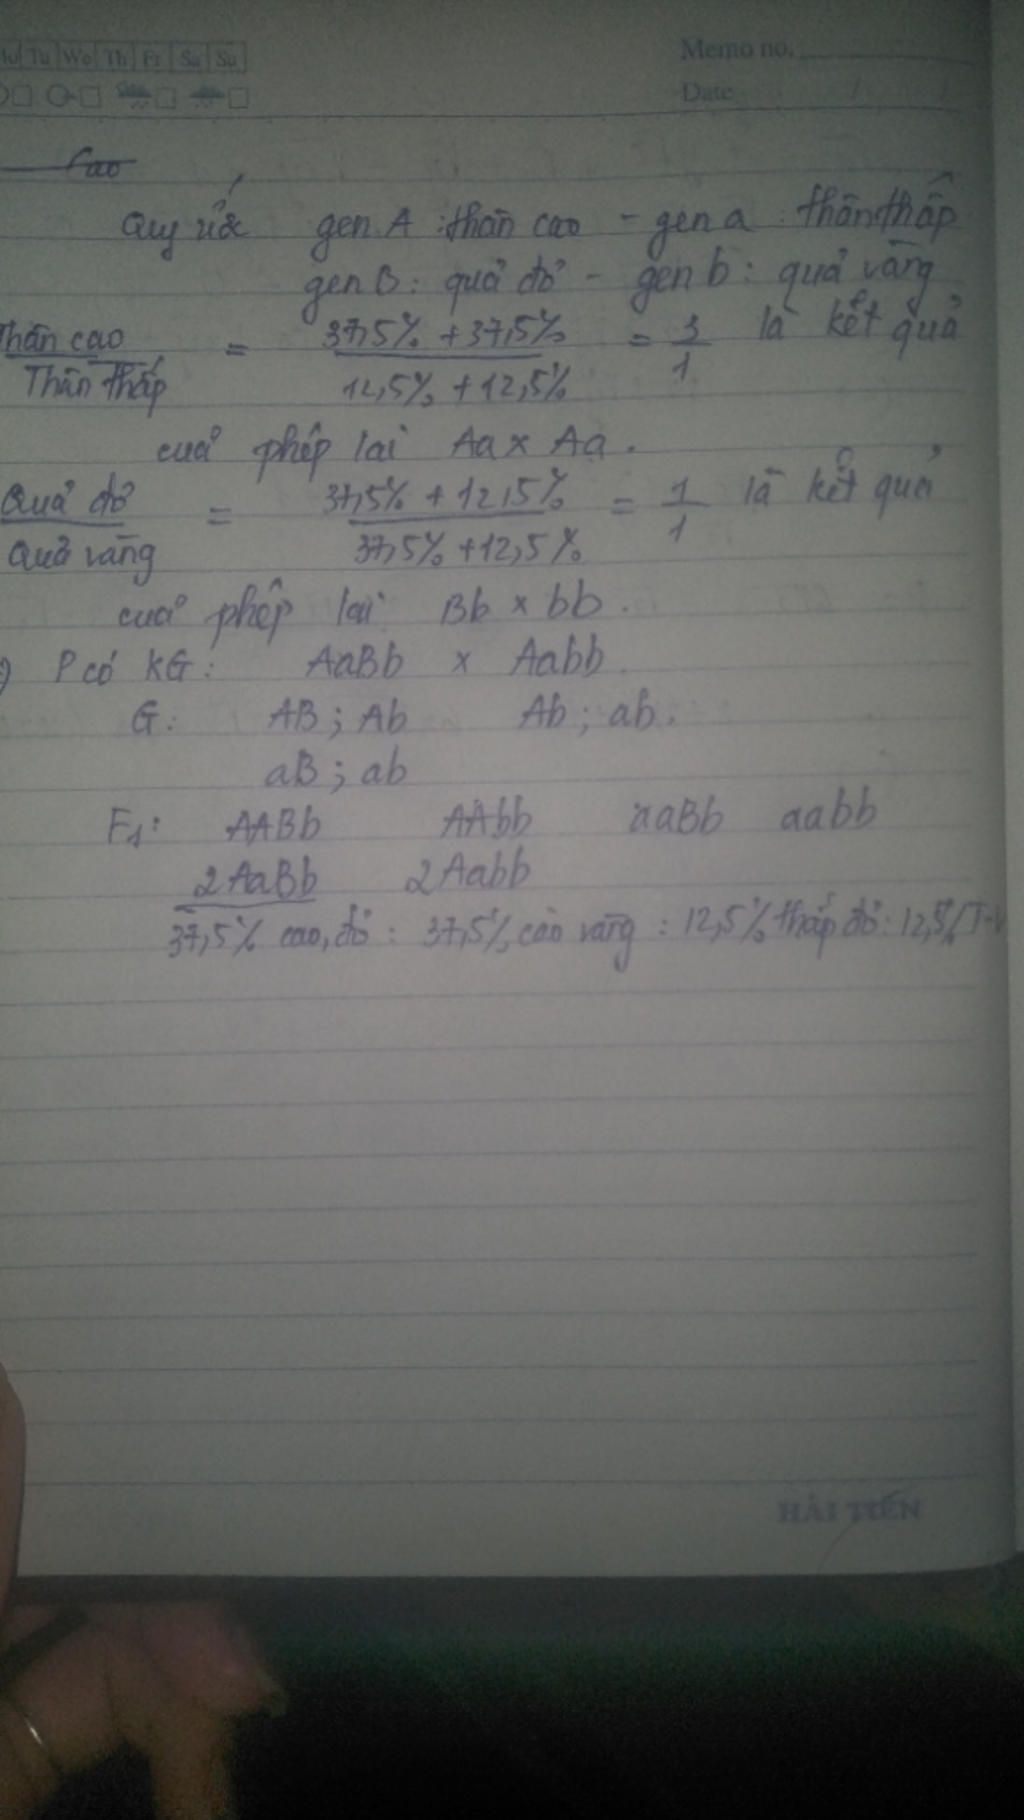 Tu We Th Fr Sa Su
Memo no.
Date / /
Cao
Quy ước gen A : thân cao - gen a : thân thấp
gen B : quả đỏ - gen b : quả vàng
Thân cao / Thân thấp = 37,5% + 37,5% / 12,5% + 12,5% = 3/1 là kết quả
cuả phép lai Aa x Aa .
Quả đỏ / Quả vàng = 37,5% + 12,5% / 37,5% + 12,5% = 1/1 là kết quả
cuả phép lai Bb x bb .
P có KG : AaBb x Aabb .
G : AB ; Ab Ab ; ab .
aB ; ab
F1 : AABb AAbb aaBb aabb
2AaBb 2Aabb
37,5% cao, đỏ : 37,5% cao vàng : 12,5% thấp đỏ : 12,5% T-V
HẢI TIẾN